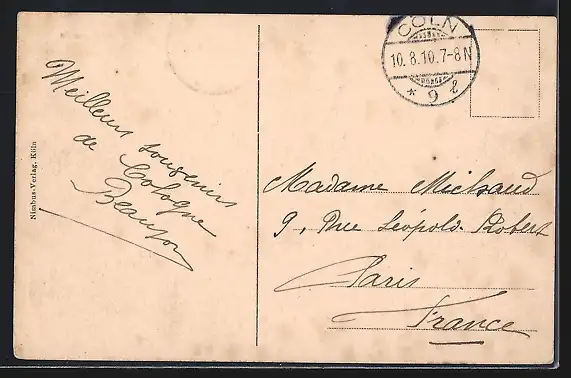 CÖLN
10.8.10.7-8N
* 9 l
Meilleurs souvenirs
de Cologne
Nimbus-Verlag, Köln
Madame Michaud
9, Rue Léopold Robert
Paris
France